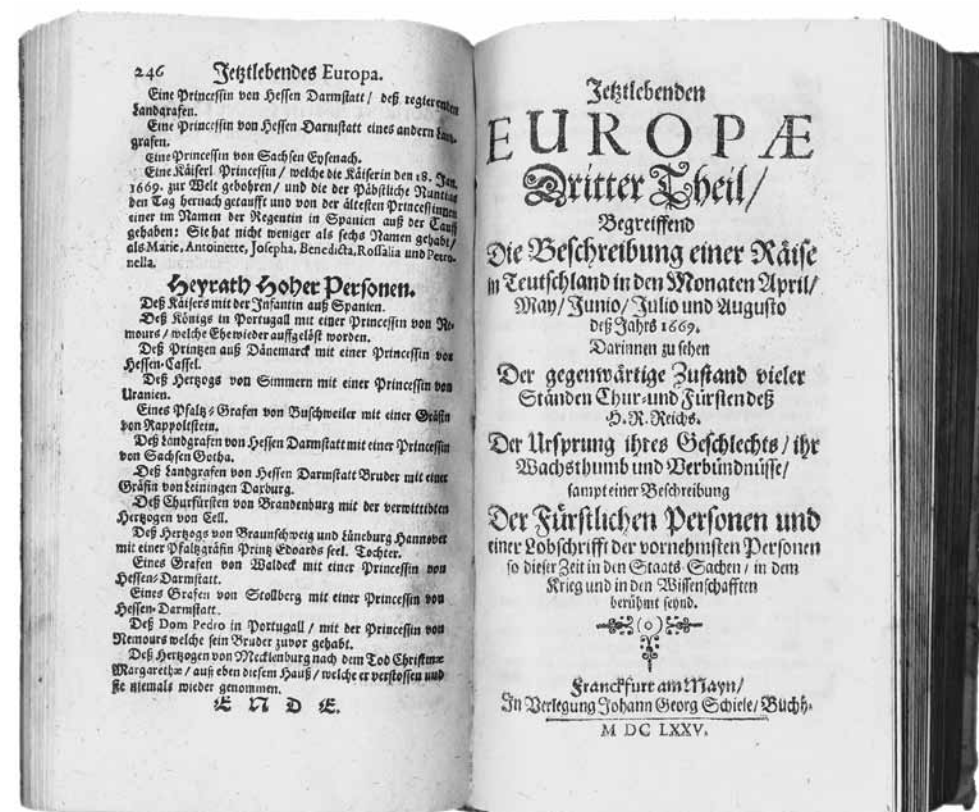 246 Jetztlebendes Europa.
Eine Princessin von Hessen Darmstatt / deß regierenden
Landgrafen.
Eine Princessin von Hessen Darnistatt eines andern Lan-
grafen.
Eine Princessin von Sachsen Eysenach.
Eine Käiserl Princessin / welche die Käiserin den 18. Jan.
1669. zur Welt gebohren / und die der Päbstliche Nuntius
den Tag hernach getaufft und von der ältesten Princessinnen
einer im Namen der Regentin in Spanien auß der Tauff
gehaben: Sie hat nicht weniger als sechs Namen gehabt /
als Marie, Antoinette, Josepha, Benedicta, Rossalia und Petro-
nella.
Heyrath Hoher Personen.
Deß Käisers mit der Infantin auß Spanien.
Deß Königs in Portugall mit einer Princessin von Ne-
mours / welche Ehe wieder auffgelöst worden.
Deß Printzen auß Dänemarck mit einer Princessin von
Hessen-Cassel.
Deß Hertzogs von Simmern mit einer Princessin von
Uranien.
Eines Pfaltz-Grafen von Buschweiler mit einer Gräfin
von Rappoltstein.
Deß Landgrafen von Hessen Darmstatt mit einer Princessin
von Sachsen Gotha.
Deß Landgrafen von Hessen Darmstatt Bruder mit einer
Gräfin von Leiningen Daxburg.
Deß Churfürsten von Brandenburg mit der verwittibten
Hertzogen von Cell.
Deß Hertzogs von Braunschweig und Lüneburg Hannover
mit einer Pfaltzgräfin Printz Edoards seel. Tochter.
Eines Grafen von Waldeck mit einer Princessin von
Hessen-Darmstatt.
Eines Grafen von Stollberg mit einer Princessin von
Hessen-Darmstatt.
Deß Dom Pedro in Portugall / mit der Princessin von
Nemours welche sein Bruder zuvor gehabt.
Deß Hertzogen von Mecklenburg nach dem Tod Christinæ
Margarethæ / auß eben diesem Hauß / welche er verstossen und
sie niemals wieder genommen.
E N D E.
Jetztlebenden
EUROPÆ
Dritter Theil /
Begreiffend
Die Beschreibung einer Räise
in Teutschland in den Monaten April /
May / Junio / Julio und Augusto
deß Jahrs 1669.
Darinnen zu sehen
Der gegenwärtige Zustand vieler
Ständen Chur- und Fürsten deß
H. R. Reichs.
Der Ursprung ihres Geschlechts / ihr
Wachsthumb und Verbündnüsse /
sampt einer Beschreibung
Der Fürstlichen Personen und
einer Lobschrifft der vornehmsten Personen
so dieser Zeit in den Staats-Sachen / in dem
Krieg und in den Wissenschafften
berühmt seynd.
(o)
Franckfurt am Mayn /
In Verlegung Johann Georg Schiele / Buchh.
M DC LXXV.